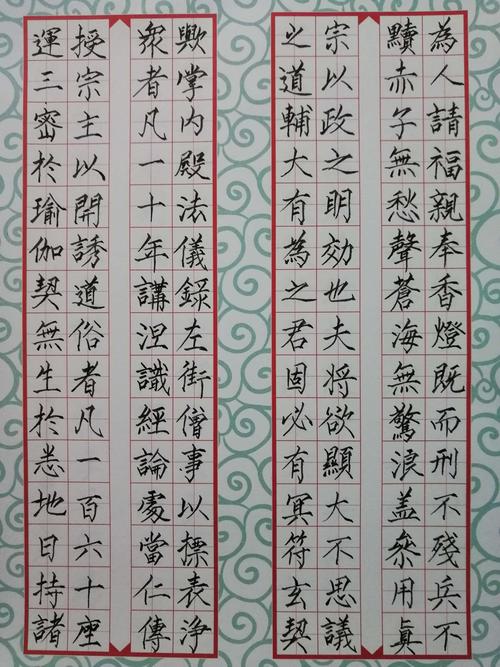 為人請福親奉香燈既而刑不殘兵不
黷赤子無愁聲蒼海無驚浪盖叅用眞
宗以政之明効也夫將欲顯大不思議
之道輔大有為之君固必有冥符玄契
歟掌内殿法儀錄左街僧事以標表淨
衆者凡一十年講涅識經論處當仁傳
授宗主以開誘道俗者凡一百六十座
運三密於瑜伽契無生於悉地日持諸